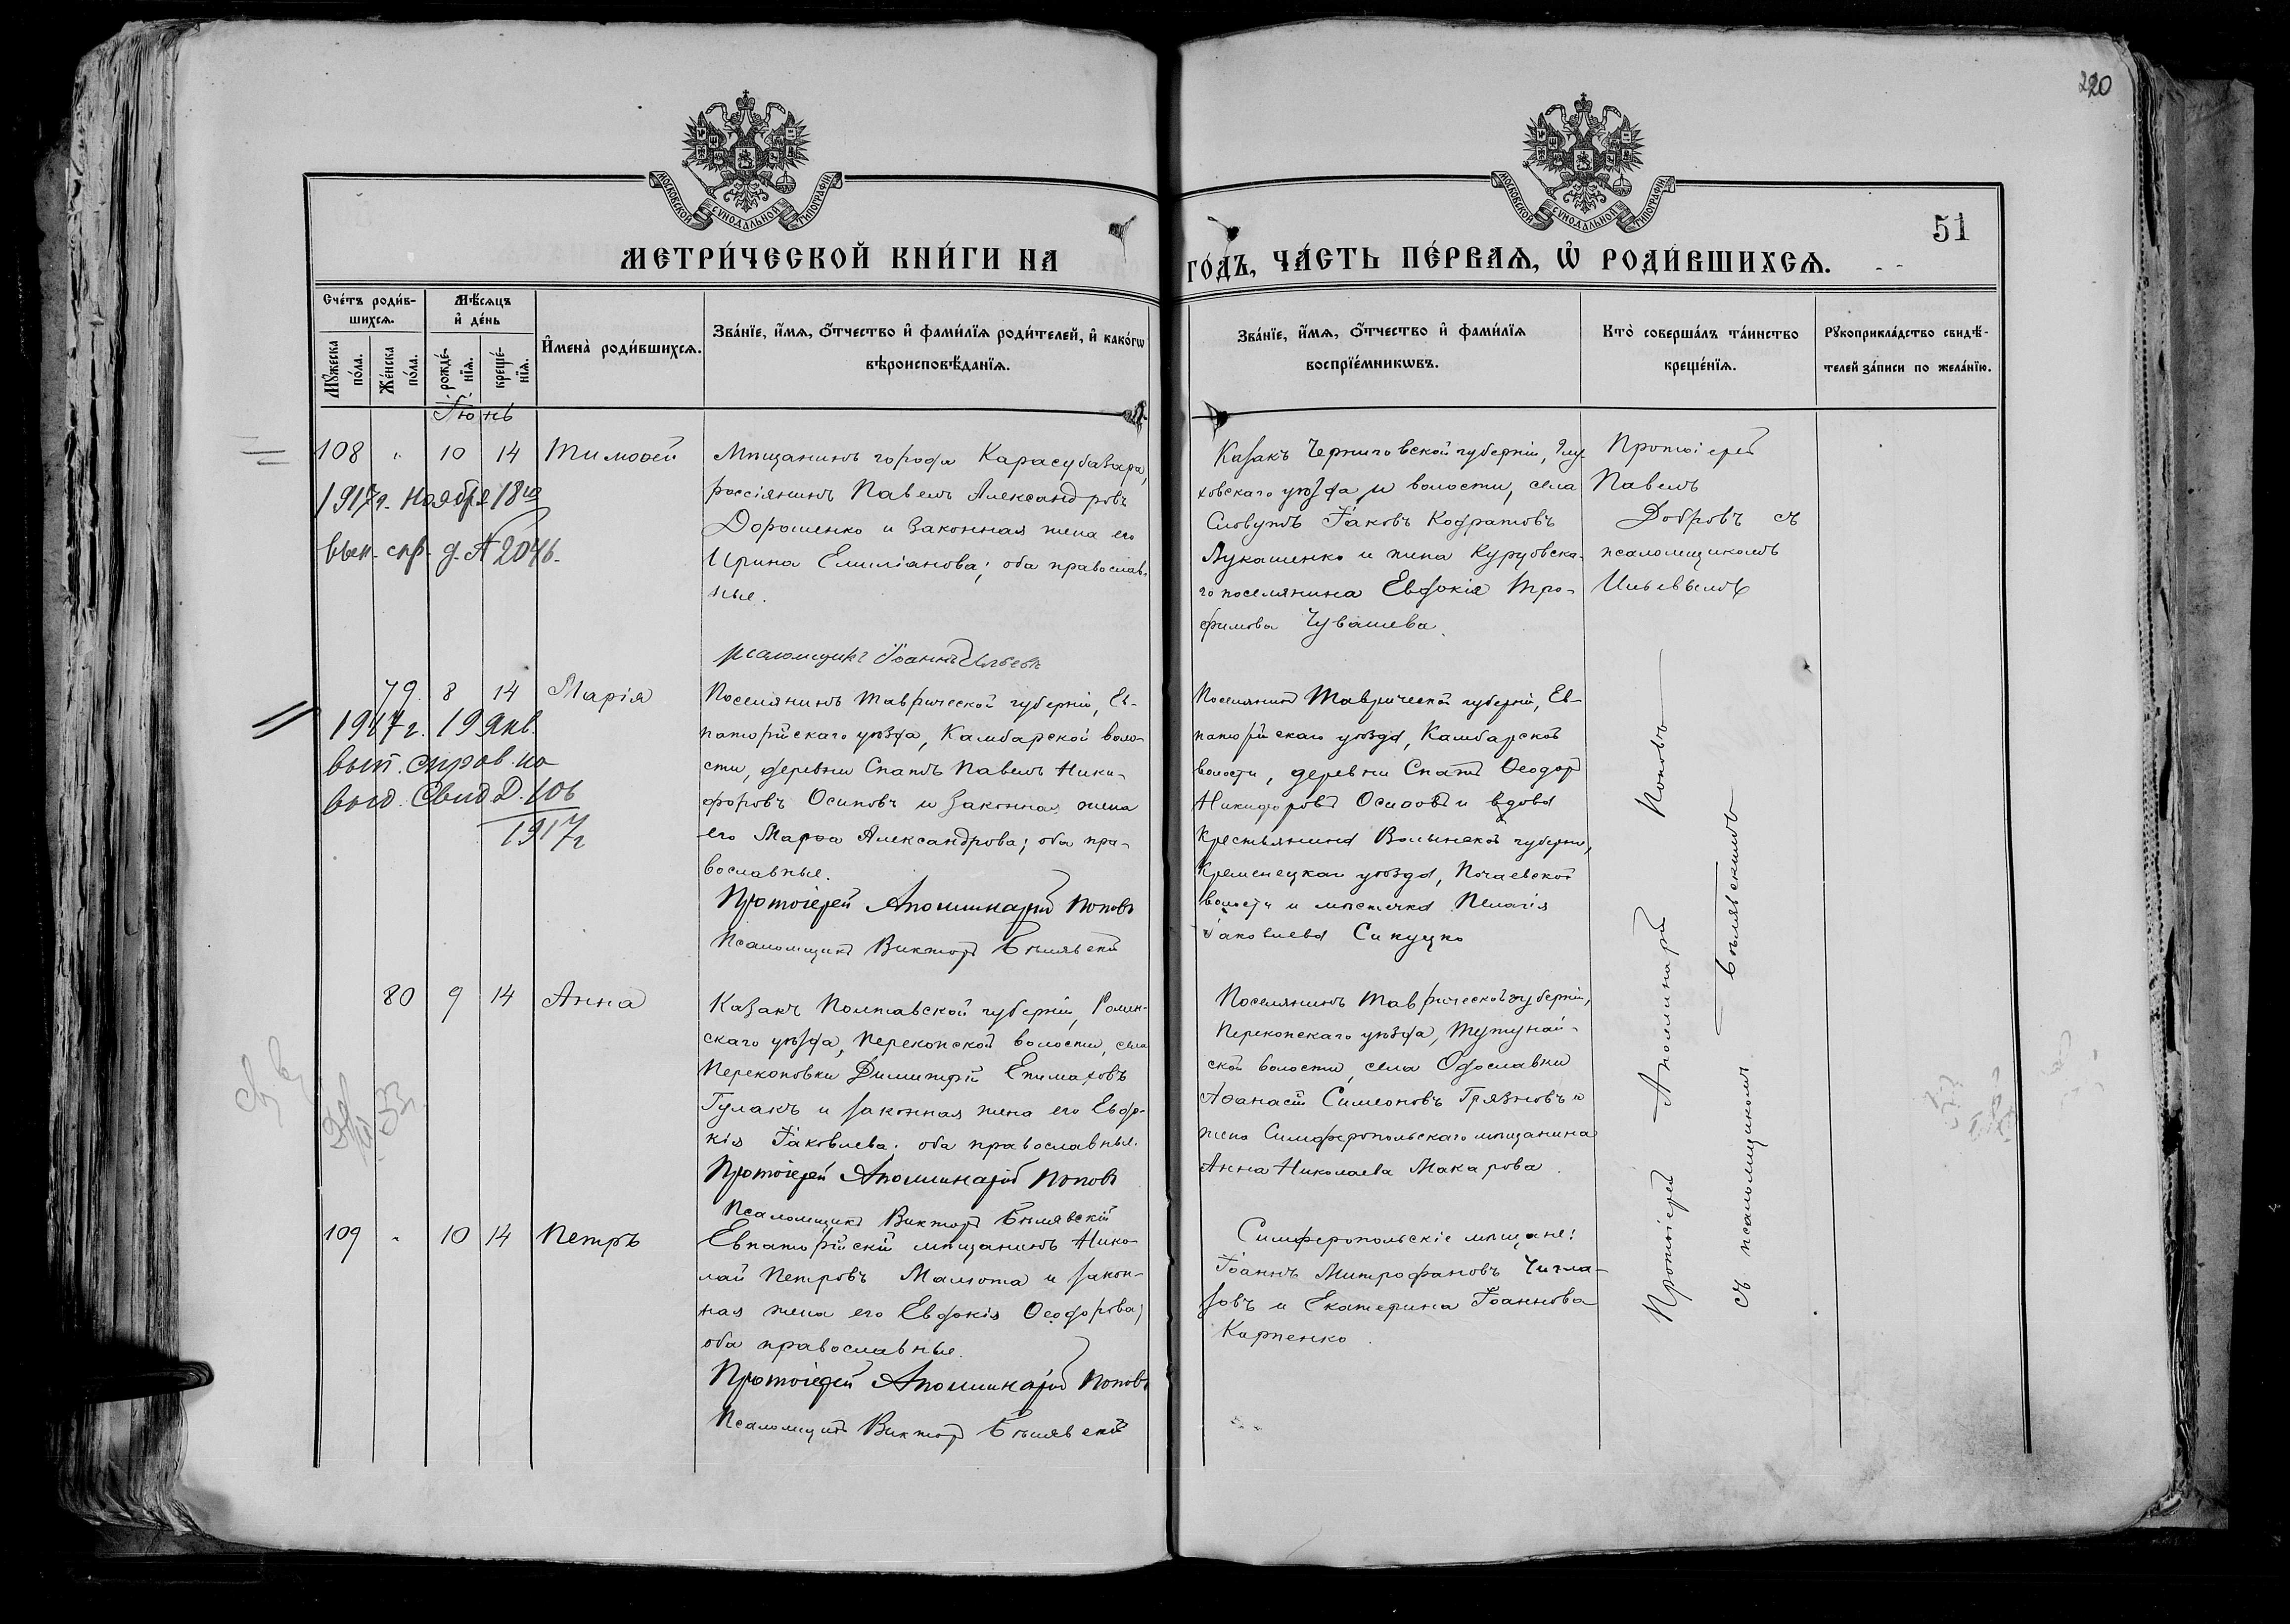 220
МОСКОВСКОЙ СѴНОДАЛЬНОЙ ТИПОГРАФІИ
МОСКОВСКОЙ СѴНОДАЛЬНОЙ ТИПОГРАФІИ
51
МЕТРИ́ЧЕСКОЙ КНИ́ГИ НА
ГО́ДЪ, ЧА́СТЬ ПЕ́РВАЯ, Ѡ҆ РОДИ́ВШИХСЯ.
Сче́тъ роди́в-
шихся.
Мѣ́сяцъ
и҆ де́нь
Мꙋ́жеска
по́ла.
Же́нска
по́ла.
рожде́-
нїя.
креще́-
нїя.
И҆мена̀ роди́вшихся.
Зва́нїе, и҆́мя, ѻ҆́тчество и҆ фами́лїя роди́телей, и҆ како́гѡ
вѣроисповѣ́данїя.
Зва́нїе, и҆́мя, ѻ҆́тчество и҆ фами́лїя
воспрїе́мникѡвъ.
Кто̀ соверша́лъ та́инство
креще́нїя.
Рꙋкоприкла́дство свидѣ́-
телей за́писи по жела́нїю.
Іюнь
108 " 10 14 Тимоѳей
1917г. Ноября 18го
вып. спр. д. № 2046.
Мѣщанинъ города Карасубазара,
россіянинъ Павелъ Александровъ
Дорошенко и законная жена его
Ирина Емиліанова; оба православ-
ные.
псаломщикъ Іоаннъ Ильевъ
Казакъ Черниговской губерніи, Глу-
ховскаго уѣзда и волости, села
Словутъ Іаковъ Кодратовъ
Лукашенко и жена Курцовска-
го поселянина Евдокія Тро-
фимова Чувашева.
Протоіерей
Павелъ
Добровъ съ
псаломщикомъ
Ильевымъ
79. 8 14 Марія
1917г. 19 Янв.
вып. справ. на
выд. Свид Д. 106
1917г
Поселянинъ Таврической губерніи, Ев-
паторійскаго уѣзда, Камбарской воло-
сти, деревни Спатъ Павелъ Ники-
форовъ Осиповъ и законная жена
его Марѳа Александрова; оба пра-
вославные.
Протоіерей Аполлинарій Поповъ
Псаломщикъ Викторъ Бѣлявскій
Поселянинъ Таврической губерніи, Ев-
паторійскаго уѣзда, Камбарской
волости, деревни Спатъ Ѳеодоръ
Никифоровъ Осиповъ и вдова
крестьянина Волынской губерніи,
Кременецкаго уѣзда, Почаевской
волости и мѣстечка Пелагія
Іаковлева
80 9 14 Анна
Казакъ Полтавской губерніи, Ромен-
скаго уѣзда, Перекопской волости, села
Перекоповки Димитрій Епимаховъ
Гулакъ и законная жена его Евдо-
кія Іаковлева; оба православные.
Протоіерей Аполлинарій Поповъ
Псаломщикъ Викторъ Бѣлявскій
Поселянинъ Таврической губерніи,
Перекопскаго уѣзда,
ской волости, села
Аѳанасій Симеоновъ Грязновъ и
жена Симферопольскаго мѣщанина
Анна Николаева Макарова.
109 " 10 14 Петръ
Евпаторійскій мѣщанинъ Нико-
лай Петровъ Малюта и закон-
ная жена его Евдокія Ѳеодорова;
оба православные.
Протоіерей Аполлинарій Поповъ
Псаломщикъ Викторъ Бѣлявскій
Симферопольскіе мѣщане:
Іоаннъ Митрофановъ Чигла-
зовъ и Екатерина Іоаннова
Карпенко.
Протоіерей Аполлинарій Поповъ
съ псаломщикомъ Бѣлявскимъ